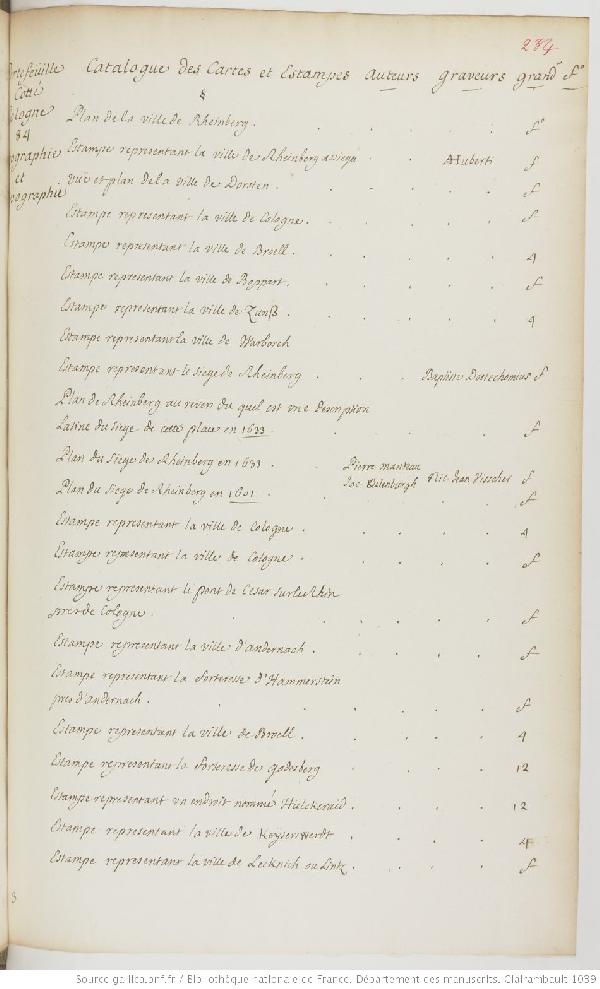 284
Catalogue des Cartes et Estampes Auteurs Graveurs grandr fo
Cotté
84
et
Plan de la ville de Rheinberg. fo
Estampe representant la ville de Rheinberg Huberti f
vuë et plan de la ville de Dorsten. f
Estampe representant la ville de Cologne. f
Estampe representant la ville de Broell. 4
Estampe representant la ville de Boppart. f
Estampe representant la ville de Zunß. 4
Estampe representant la ville de Warborch
Estampe representant le siege de Rheinberg Baptista Doetechomius f
Plan de Rheinberg au revers du quel est une description
Latine du siege de cette place en 1633. f
Plan du siege de Rheinberg en 1633. Pierre Nic. Jean Visscher f
Plan du siege de Rheinberg en 1601. f
Estampe representant la ville de Cologne. 4
Estampe representant la ville de Cologne. f
Estampe representant le pont de Cesar sur le Rhin
pres de Cologne. f
Estampe representant la ville d'andernach. f
Estampe representant la forteresse d'Hammerstein
pres d'andernach. f
Estampe representant la ville de Broell. 4
Estampe representant la forteresse de Godesberg 12
Estampe representant un endroit nommé Hulckeraid. 12
Estampe representant la ville de Keyserswerdt. 4
Estampe representant la ville de Lecknich ou Lintz. f
Source gallica.bnf.fr / Bibliothèque nationale de France. Département des manuscrits. Clairambault 1039